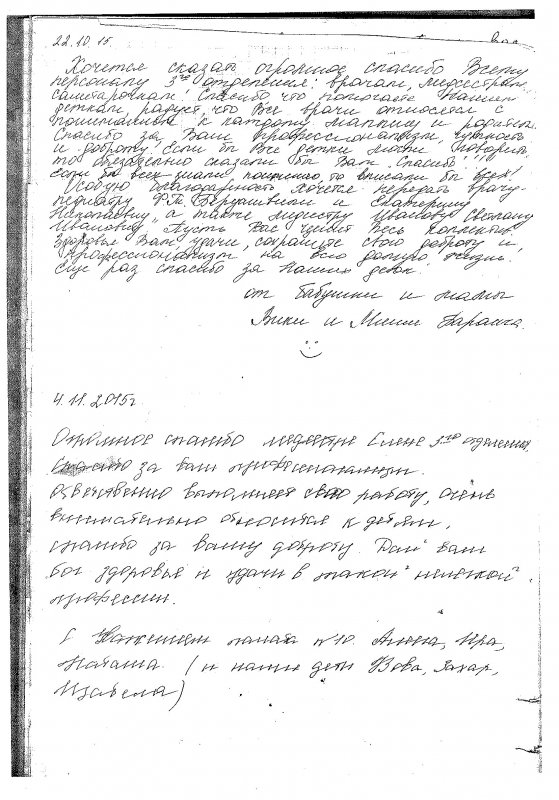 22.10.15.
Хочется сказать огромное спасибо Всему
персоналу 3го отделения: врачам, медсестрам,
санитарочкам! Спасибо что помогаете Нашим
деткам радует, что Все врачи относятся с
пониманием к каждому малышу и родителям
Спасибо за Ваш профессионализм, чуткость
и доброту. Если бы Все детки могли говорить
то обязательно сказали бы Вам "Спасибо"!!!
если бы всех знали поименно, то вписали бы всех!
Особую благодарность хочется передать врачу-
педиатру Ф.Т. и Екатерину
Николаевну, а также медсестру Иванову Светлану
Ивановну. Пусть Вас ценит Весь коллектив.
Здоровья Вам удачи, сохраните свою доброту и
профессионализм на всю долгую жизнь.
Еще раз спасибо за Наших деток!
от бабушки и мамы
Вики и Миши
4.11.2015г
Огромное спасибо медсестре Елене 3го отделения.
Спасибо за ваш профессионализм.
Ответственно выполняет свою работу, очень
внимательно относится к детям,
спасибо за вашу доброту. Дай вам
бог здоровья и удачи в такой нелегкой
профессии.
С Уважением палата №10. Алина, Ира,
Наташа. (и наши дети Вова, Захар,
)